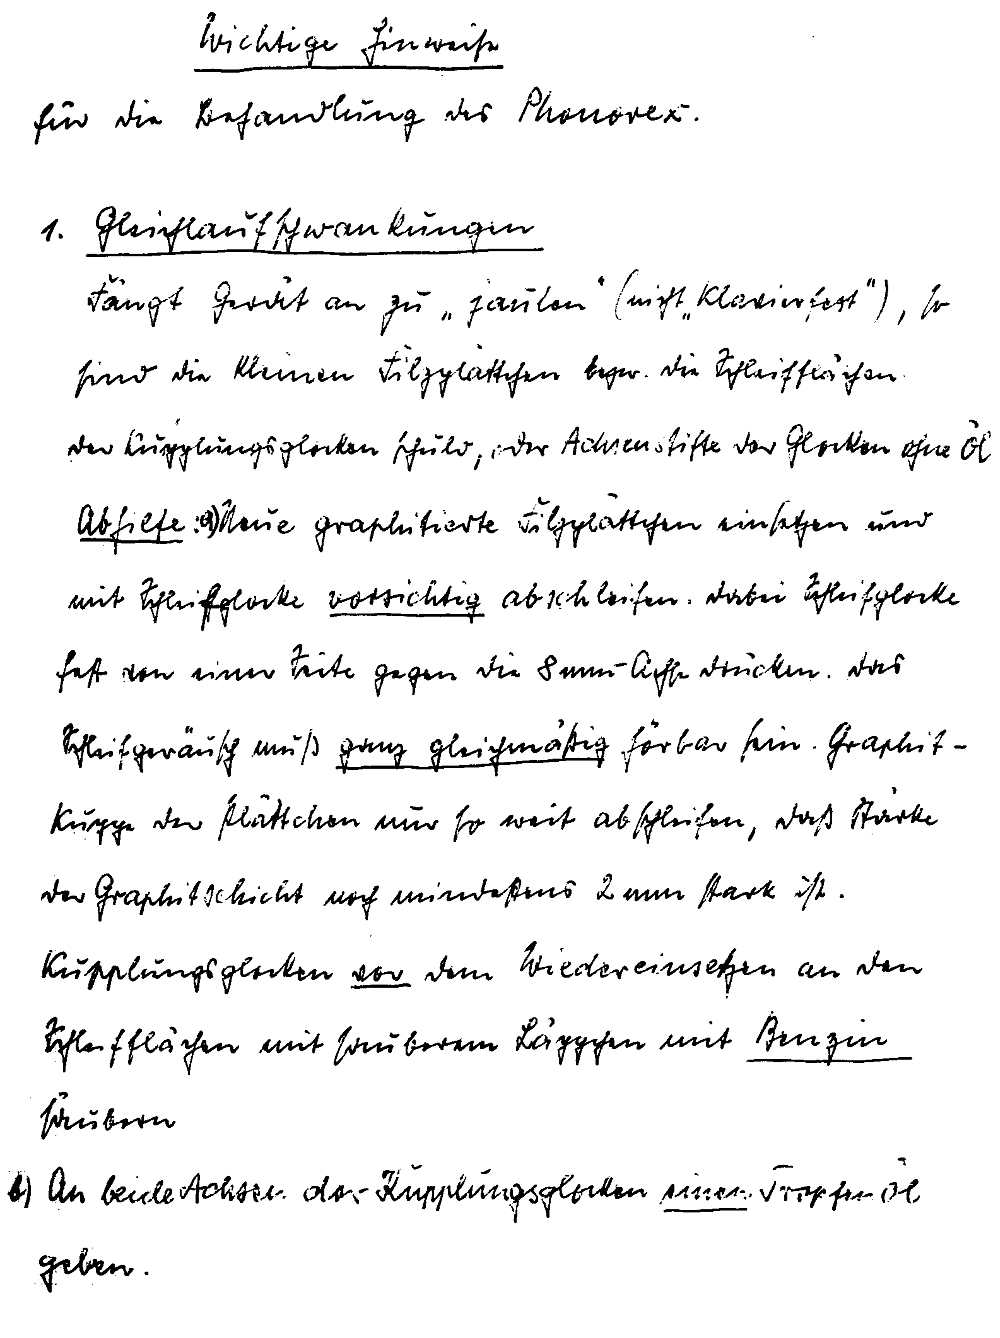 Wichtige Hinweise
für die Behandlung des Phonorex.
1. Gleichlaufschwankungen
Fängt Gerät an zu „jaulen" (nicht „Klavierfest"), so
sind die kleinen Filzplättchen bezw. die Schleifflächen
der Kupplungsglocken schuld, oder Achsenstifte der Glocken ohne Öl
Abhilfe: a) Neue graphitierte Filzplättchen einsetzen und
mit Schleifglocke vorsichtig abschleifen. Dabei Schleifglocke
fest von einer Seite gegen die 8 mm-Achse drücken. Das
Schleifgeräusch muß ganz gleichmäßig hörbar sein. Graphit-
kuppe der Plättchen nur so weit abschleifen, daß Stärke
der Graphitschicht noch mindestens 2 mm stark ist.
Kupplungsglocken vor dem Wiedereinsetzen an den
Schleifflächen mit sauberem Läppchen mit Benzin
säubern
b) An beide Achsen der Kupplungsglocken einen Tropfen Öl
geben.